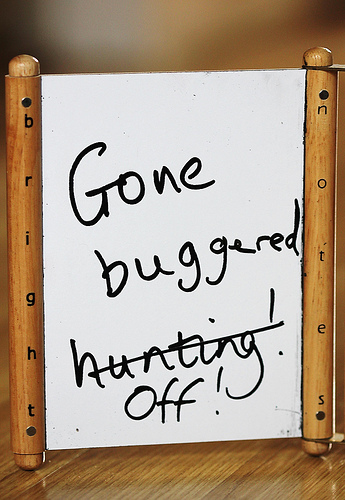 bright
Gone
buggered
hunting!
Off!
notes